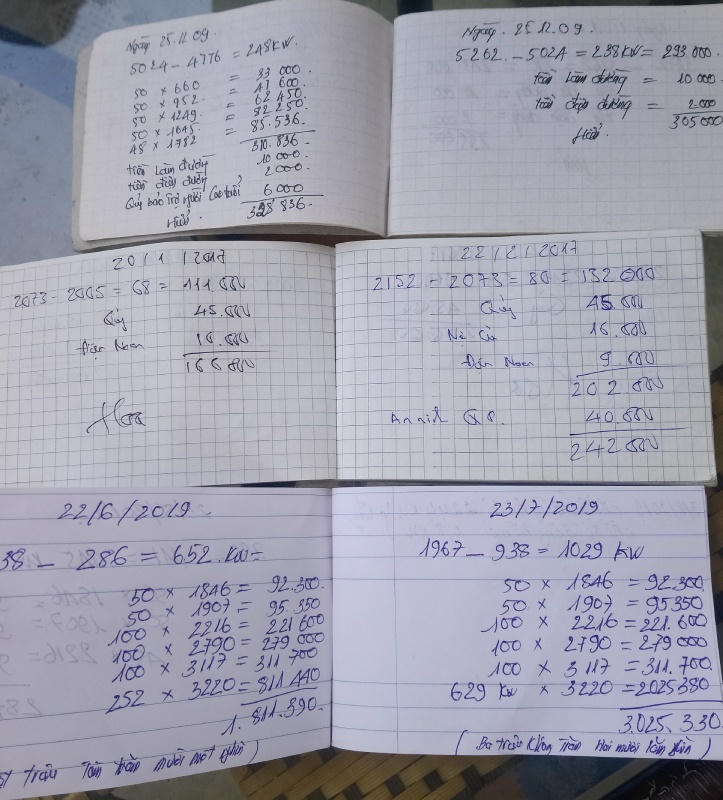 Ngày 25.11.09.
5024 - 4776 = 248KW.
50 × 660 = 33 000.
50 × 952 = 47 600.
50 × 1249 = 62 450.
50 × 1645 = 82 250.
48 × 1782 = 85.536.
310.836.
tiền làm đường 10 000.
tiền điện đường 2 000.
Quỹ bảo trợ người cao tuổi 6 000
328 836.
Hiếu.
Ngày. 25.12.09.
5262. - 5024 = 238KW = 293 000.
tiền làm đường = 10 000.
tiền điện đường = 2.000
305000
Hiếu.
20/1/2017
2073 - 2005 = 68 = 111.000
Qũy 45.000
Điện 10.000
166 000
22/2/2017
2152 - 2073 = 80 = 132 000
Qũy 45.000
16.000
Điện 9.000
202 000
40.000
242 000
22/6/2019.
38 - 286 = 652.KW=
50 × 1846 = 92.300.
50 × 1907 = 95.350
100 × 2216 = 221 600
100 × 2790 = 279 000
100 × 3117 = 311 700
252 × 3220 = 811 440
1.811.390.
triệu Tám trăm mười một ghìn )
23/7/2019
1967 - 938 = 1029 KW
50 × 1846 = 92.300.
50 × 1907 = 95350
100 × 2216 = 221.600
100 × 2790 = 279 000
100 × 3117 = 311.700.
629 KW × 3220 = 2025380
3.025.330
( Ba triệu Không Trăm Hai mười lăm ghìn )